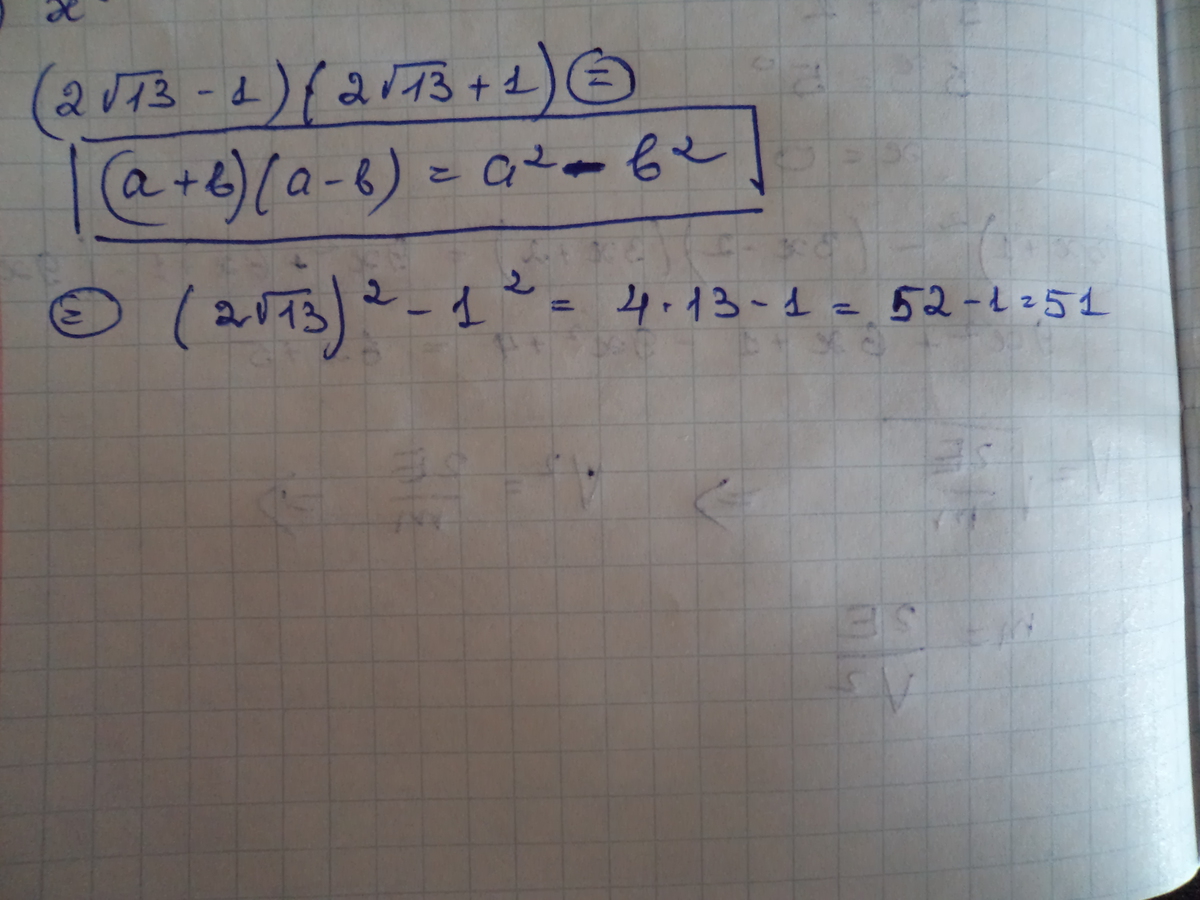 x
(2√13 - 1)(2√13 + 1) =
(a + b)(a - b) = a² - b²
= (2√13)² - 1² = 4 · 13 - 1 = 52 - 1 = 51